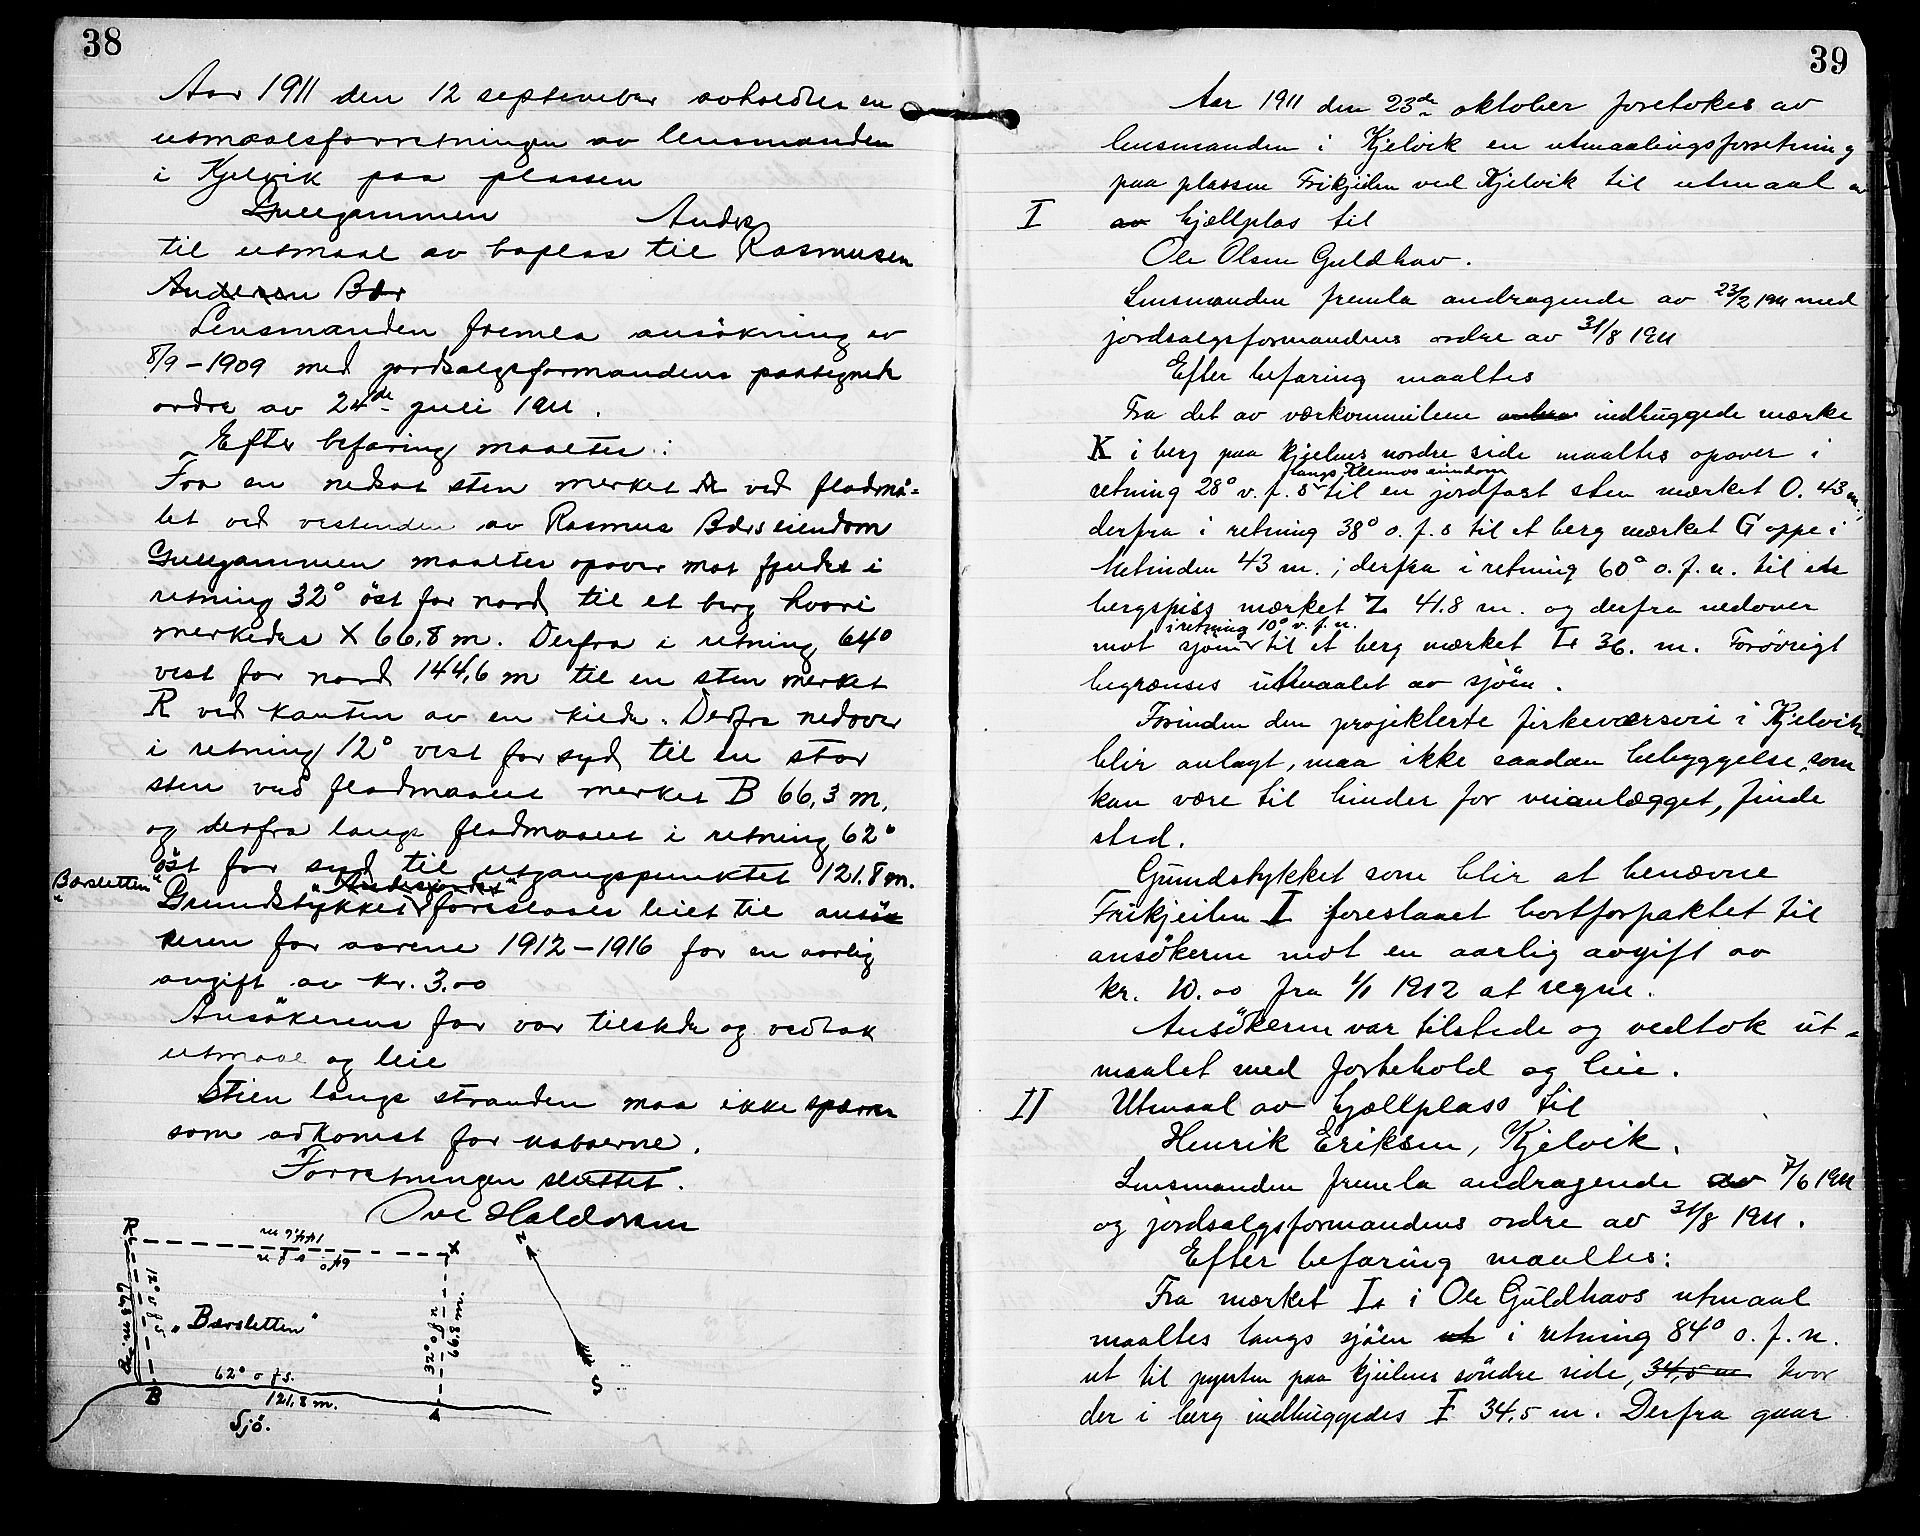 38
Aar 1911 den 12 september avholdtes en
utmaalsforretningen av lensmanden
i Kjelvik paa plassen
Gullgammen Anders
til utmaal av boplas til Rasmusen
Andersen Bær
Lensmanden fremla ansökning av
8/9 – 1909 med jordsalgsformandens paategnede
ordre av 24de juli 1911.
Efter befaring maaltes:
Fra en nedsat sten merket A ved flodmå-
let ved vestenden av Rasmus Bærs eiendom
Gullgammen maaltes opover mot fjeldet i
retning 32° öst for nord til et berg hvori
merkedes X 66,8 m. Derfra i retning 64°
vest for nord 144,6 m til en sten merket
R ved kanten av en kiede. Derfra nedover
i retning 12° vest for syd til en stor
sten ved flodmaalet merket B 66,3 m,
og derfra langs flodmaalet i retning 62°
öst for syd til utgangspunktet 121.8 m.
"Bærsletten"
Grundstykket foreslaaes leiet til ansö-
keren for aarene 1912 – 1916 for en aarlig
avgift av kr. 3.00
Ansökerens far var tilstede og vedtok
utmaal og leie
Stien langs stranden maa ikke spærres
som adkomst for naboerne.
Forretningen sluttet.
Ove Haldorsen
R
144,6 m
64° v f n
X
N
S
12° v f s
"Bærsletten"
32° o f n
66.8 m.
62° o f s.
B
121,8 m.
A
Sjö.
39
Aar 1911 den 23de oktober foretokes av
lensmanden i Kjelvik en utmaalingsforretning
paa plassen Frikjeilen ved Kjelvik til utmaal av
I av hjællplas til
Ole Olsen Guldhav.
Lensmanden fremla andragende av 23/2 1911 med
jordsalgsformandens ordre av 31/8 1911
Efter befaring maaltes
Fra det av værkommitene indhuggede mærke
K i berg paa kjeilens nordre side maaltes opover i
langs Klemos eiendom
retning 28° v. f. s til en jordfast sten mærket O. 43 m.;
derfra i retning 38° o. f. s til et berg mærket G oppe i
Metinden 43 m.; derfra i retning 60° o. f. n. til et
bergspiss mærket Z 41.8 m. og derfra nedover
i retning 10° v. f. n.
mot sjöen til et berg mærket I+ 36. m. Forövrigt
begrænses utmaalet av sjöen.
Forinden den projekterte fiskeværsvei i Kjelvik
blir anlagt, maa ikke saadan bebyggelse, som
kan være til hinder for veianlægget, finde
sted.
Grundstykket som blir at benævne
Frikjeilen I foreslaaet bortforpaktet til
ansökeren mot en aarlig avgift av
kr. 10.00 fra 1/1 1912 at regne.
Ansökeren var tilstede og vedtok ut-
maalet med forbehold og leie.
II Utmaal av hjællplass til
Henrik Eriksen, Kjelvik.
Lensmanden fremla andragende av 7/6 1911
og jordsalgsformandens ordre av 31/8 1911.
Efter befaring maaltes:
Fra mærket I+ i Ole Guldhavs utmaal
maaltes langs sjöen ut i retning 84° o. f. n.
ut til pynten paa kjeilens söndre side, 34,5 m hvor
der i berg indhuggedes F 34,5 m. Derfra gaar